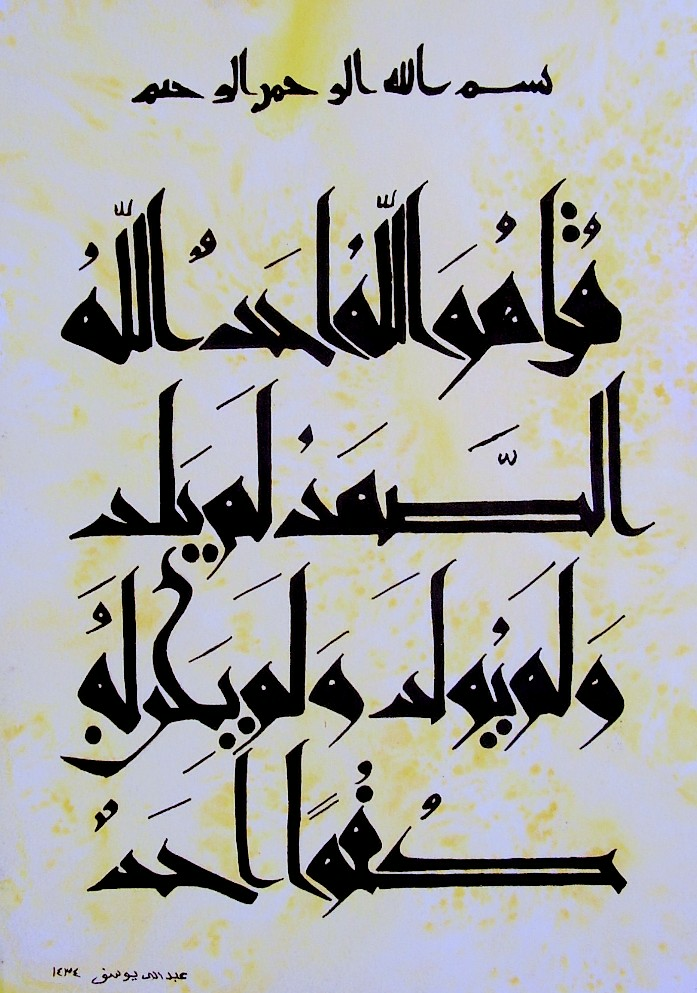 بسم الله الرحمن الرحيم
قُلْ هُوَ اللَّهُ أَحَدٌ اللَّهُ
الصَّمَدُ لَمْ يَلِد
وَلَمْ يُولَد وَلَمْ يَكُن لَهُ
كُفُوًا أَحَدٌ
عبد الله يوسف ١٤٣٤